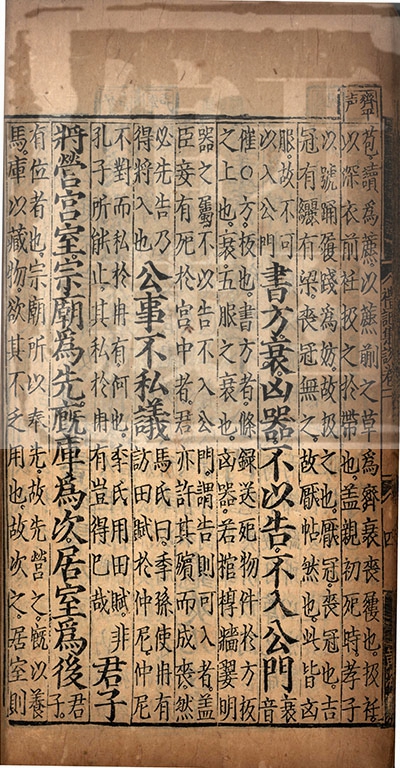 苞讀爲藨以藨蒯之草爲齊衰喪屨也扱衽
以深衣前衽扱之於帶也盖親初死時孝子
以號踊履踐爲妨故扱之也厭冠喪冠也吉
冠有纚有梁喪冠無之故厭帖然也此皆凶
服故不可以入公門書方衰凶器不以告不入公門衰音
催○方板也書方者條録送死物件於方板
之上也衰五服之衰也凶器若棺槨牆翣明
器之屬不以告不入公門謂告則可入者盖
臣妾有死於宮中者君亦許其殯而成喪然
必先告乃得將入也公事不私議馬氏曰季孫使冉有訪田賦於仲尼仲尼
不對而私於冉有何也季氏用田賦非孔子所能止其私於冉有豈得已哉君子
將營宮室宗廟爲先廐庫爲次居室爲後君子
有位者也宗廟所以奉先故先營之廐以養
馬庫以藏物欲其不乏用也故次之居室則